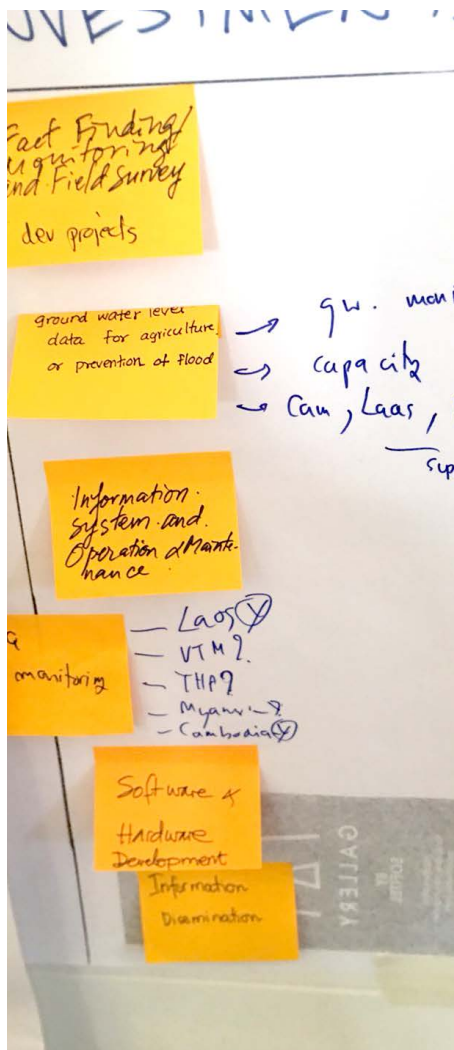 INVESTMENT
Fact Finding/
Monitoring
and Field Survey
dev projects
ground water level
data for agriculture
or prevention of flood
→ gw. moni
→ capacity
→ Cam, Laos,
sup
Information
System and
Operation & Mainte-
nance
monitoring
— Laos Ⓨ
— VTM?
— THA?
— Myanmar?
— Cambodia Ⓨ
Software &
Hardware
Development
Information
Dissemination
GALLERY